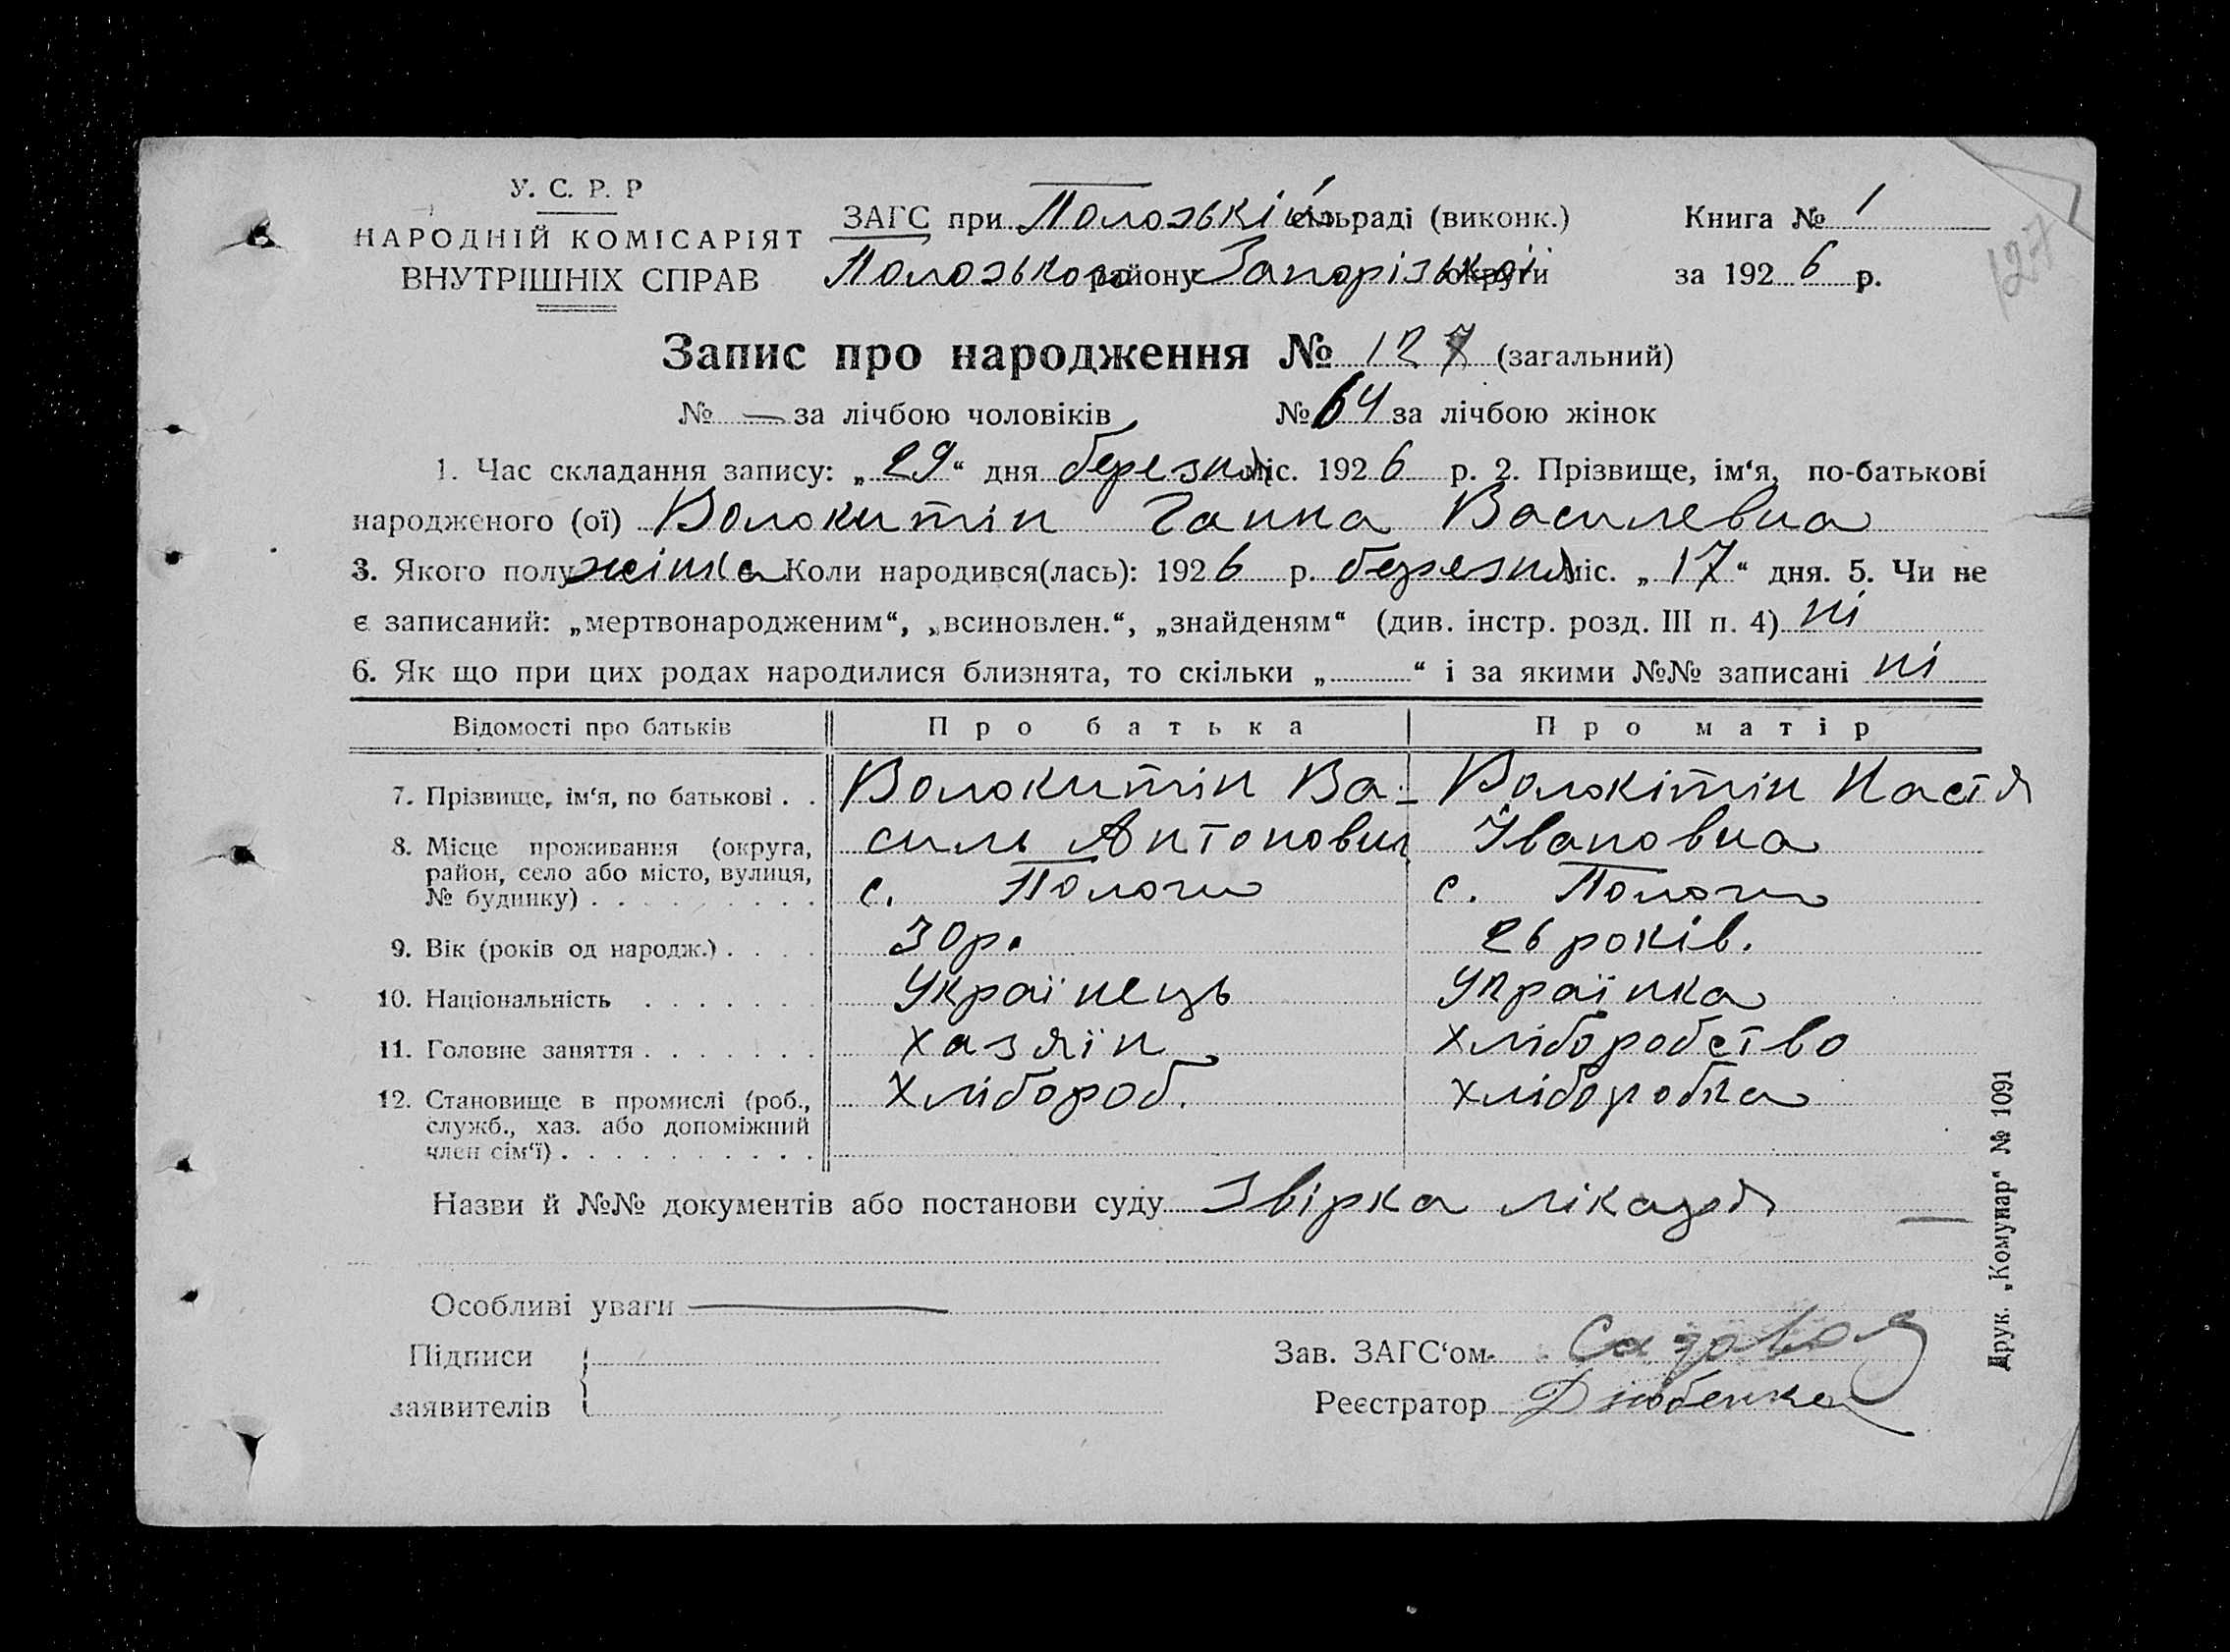 У. С. Р. Р
НАРОДНІЙ КОМІСАРІЯТ
ВНУТРІШНІХ СПРАВ
ЗАГС при Полозькій сільраді (виконк.)
Полозького району Запорізької округи
Книга № 1
за 1926 р.
127
Запис про народження № 127 (загальний)
№ — за лічбою чоловіків № 64 за лічбою жінок
1. Час складання запису: „29“ дня березня міс. 1926 р. 2. Прізвище, ім‘я, по-батькові
народженого (ої) Волокитін Ганна Василевна
3. Якого полу жінка Коли народився(лась): 1926 р. березня міс. „17“ дня. 5. Чи не
є записаний: „мертвонародженим“, „всиновлен.“, „знайденям“ (див. інстр. розд. III п. 4) ні
6. Як що при цих родах народилися близнята, то скільки „ “ і за якими №№ записані ні
Відомості про батьків Про батька Про матір
7. Прізвище, ім‘я, по батькові . . Волокитін Ва- Волокітін Настя
8. Місце проживання (округа, силь Антонович Івановна
район, село або місто, вулиця,
№ будинку) . . . . . . . . . с. Пологи с. Пологи
9. Вік (років од народж.) . . . . 30 р. 26 років.
10. Національність . . . . . . . Українець Українка
11. Головне заняття . . . . . . . хазяїн хліборобство
12. Становище в промислі (роб., хлібороб. хліборобка
служб., хаз. або допоміжний
член сім‘ї) . . . . . . . . . .
Назви й №№ документів або постанови суду звірка лікаря —
Особливі уваги —
Підписи
заявителів
Зав. ЗАГС‘ом
Реєстратор Дзюбенко
Друк. „Комунар“ № 1091